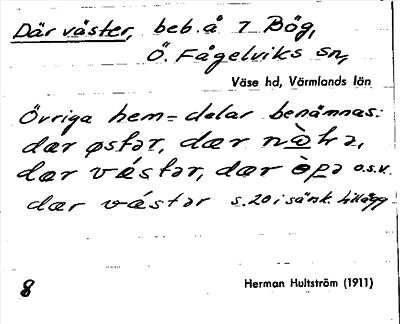 Där väster, beb. å 7 Bög,
Ö. Fågelviks sn,
Väse hd, Värmlands län
Övriga hem=delar benämnas:
dær østər, dær
dær vástər, dær o.s.v.
dær vástər s. 20 i sänk. tillägg
8
Herman Hultström (1911)